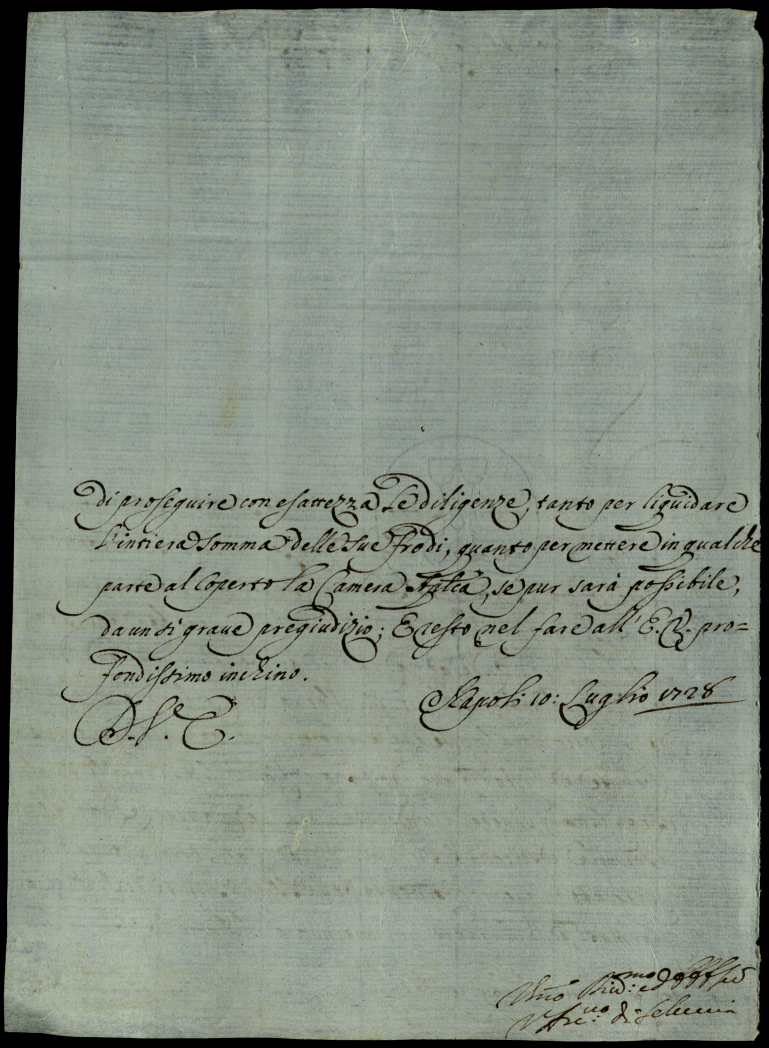 di proseguire con esattezza le diligenze, tanto per liquidare
l'intiera somma delle sue frodi, quanto per mettere in qualche
parte al coperto la Camera Aulca, se pur sarà possibile,
da un si grave pregiudizio; E resto nel fare all' E. V. pro=
fondissimo inchino.
D. V. E. Napoli 10: Luglio 1728
Vmo
di Seleucia